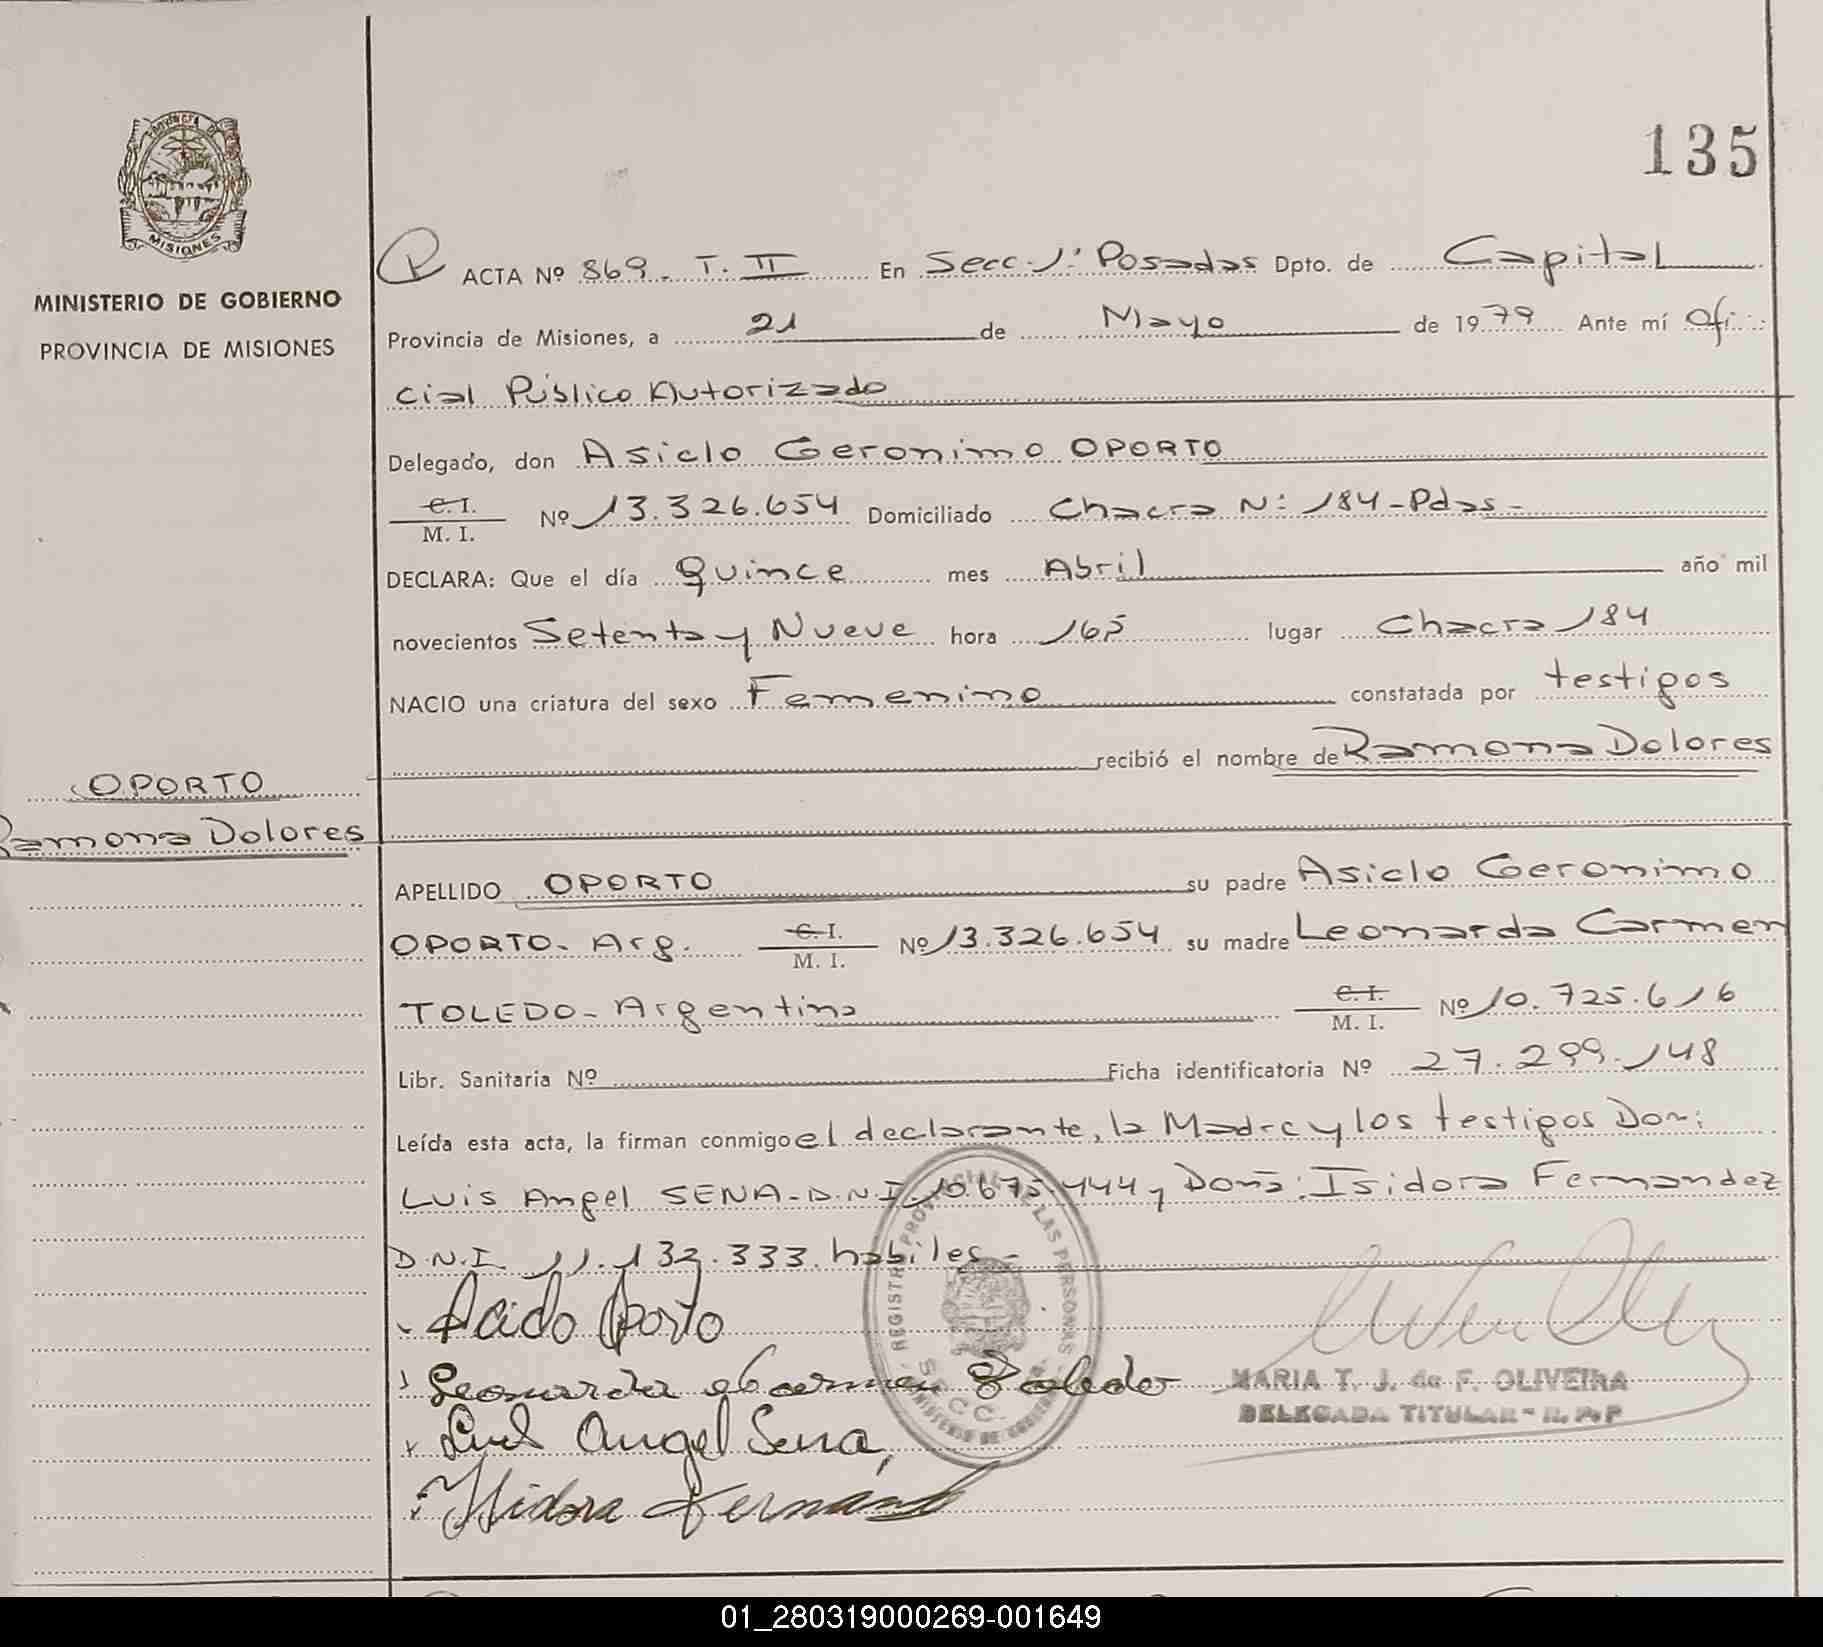 135
PROVINCIA DE
MISIONES
MINISTERIO DE GOBIERNO
PROVINCIA DE MISIONES
OPORTO
Ramona Dolores
ACTA Nº 869. T. II En Secc. 1ª Posadas Dpto. de Capital
Provincia de Misiones, a 21 de Mayo de 1979 Ante mí Ofi
cial Público Autorizado
Delegado, don Asiclo Geronimo OPORTO
C. I.
M. I. Nº 13.326.654 Domiciliado Chacra Nº 184-Pdas-
DECLARA: Que el día quince mes Abril año mil
novecientos Setenta y Nueve hora 165 lugar Chacra 184
NACIO una criatura del sexo Femenino constatada por testigos
recibió el nombre de Ramona Dolores
APELLIDO OPORTO su padre Asiclo Geronimo
OPORTO- Arg. C. I. M. I. Nº 13.326.654 su madre Leonarda Carmen
TOLEDO- Argentina C. I. M. I. Nº 10.725.616
Libr. Sanitaria Nº Ficha identificatoria Nº 27.299.148
Leída esta acta, la firman conmigo el declarante, la Madre y los testigos Don:
Luis Angel SENA-D.N.I. 10.675.444 y Doña: Isidora Fernandez
D.N.I. 11.132.333. habiles-
Acido Oporto
Leonarda Carmen Toledo
Luis Angel Sena
Isidora Fernández
REGISTRO PROVINCIAL DE LAS PERSONAS
MARIA T. J. de F. OLIVEIRA
DELEGADA TITULAR - R. P. P
01_280319000269-001649